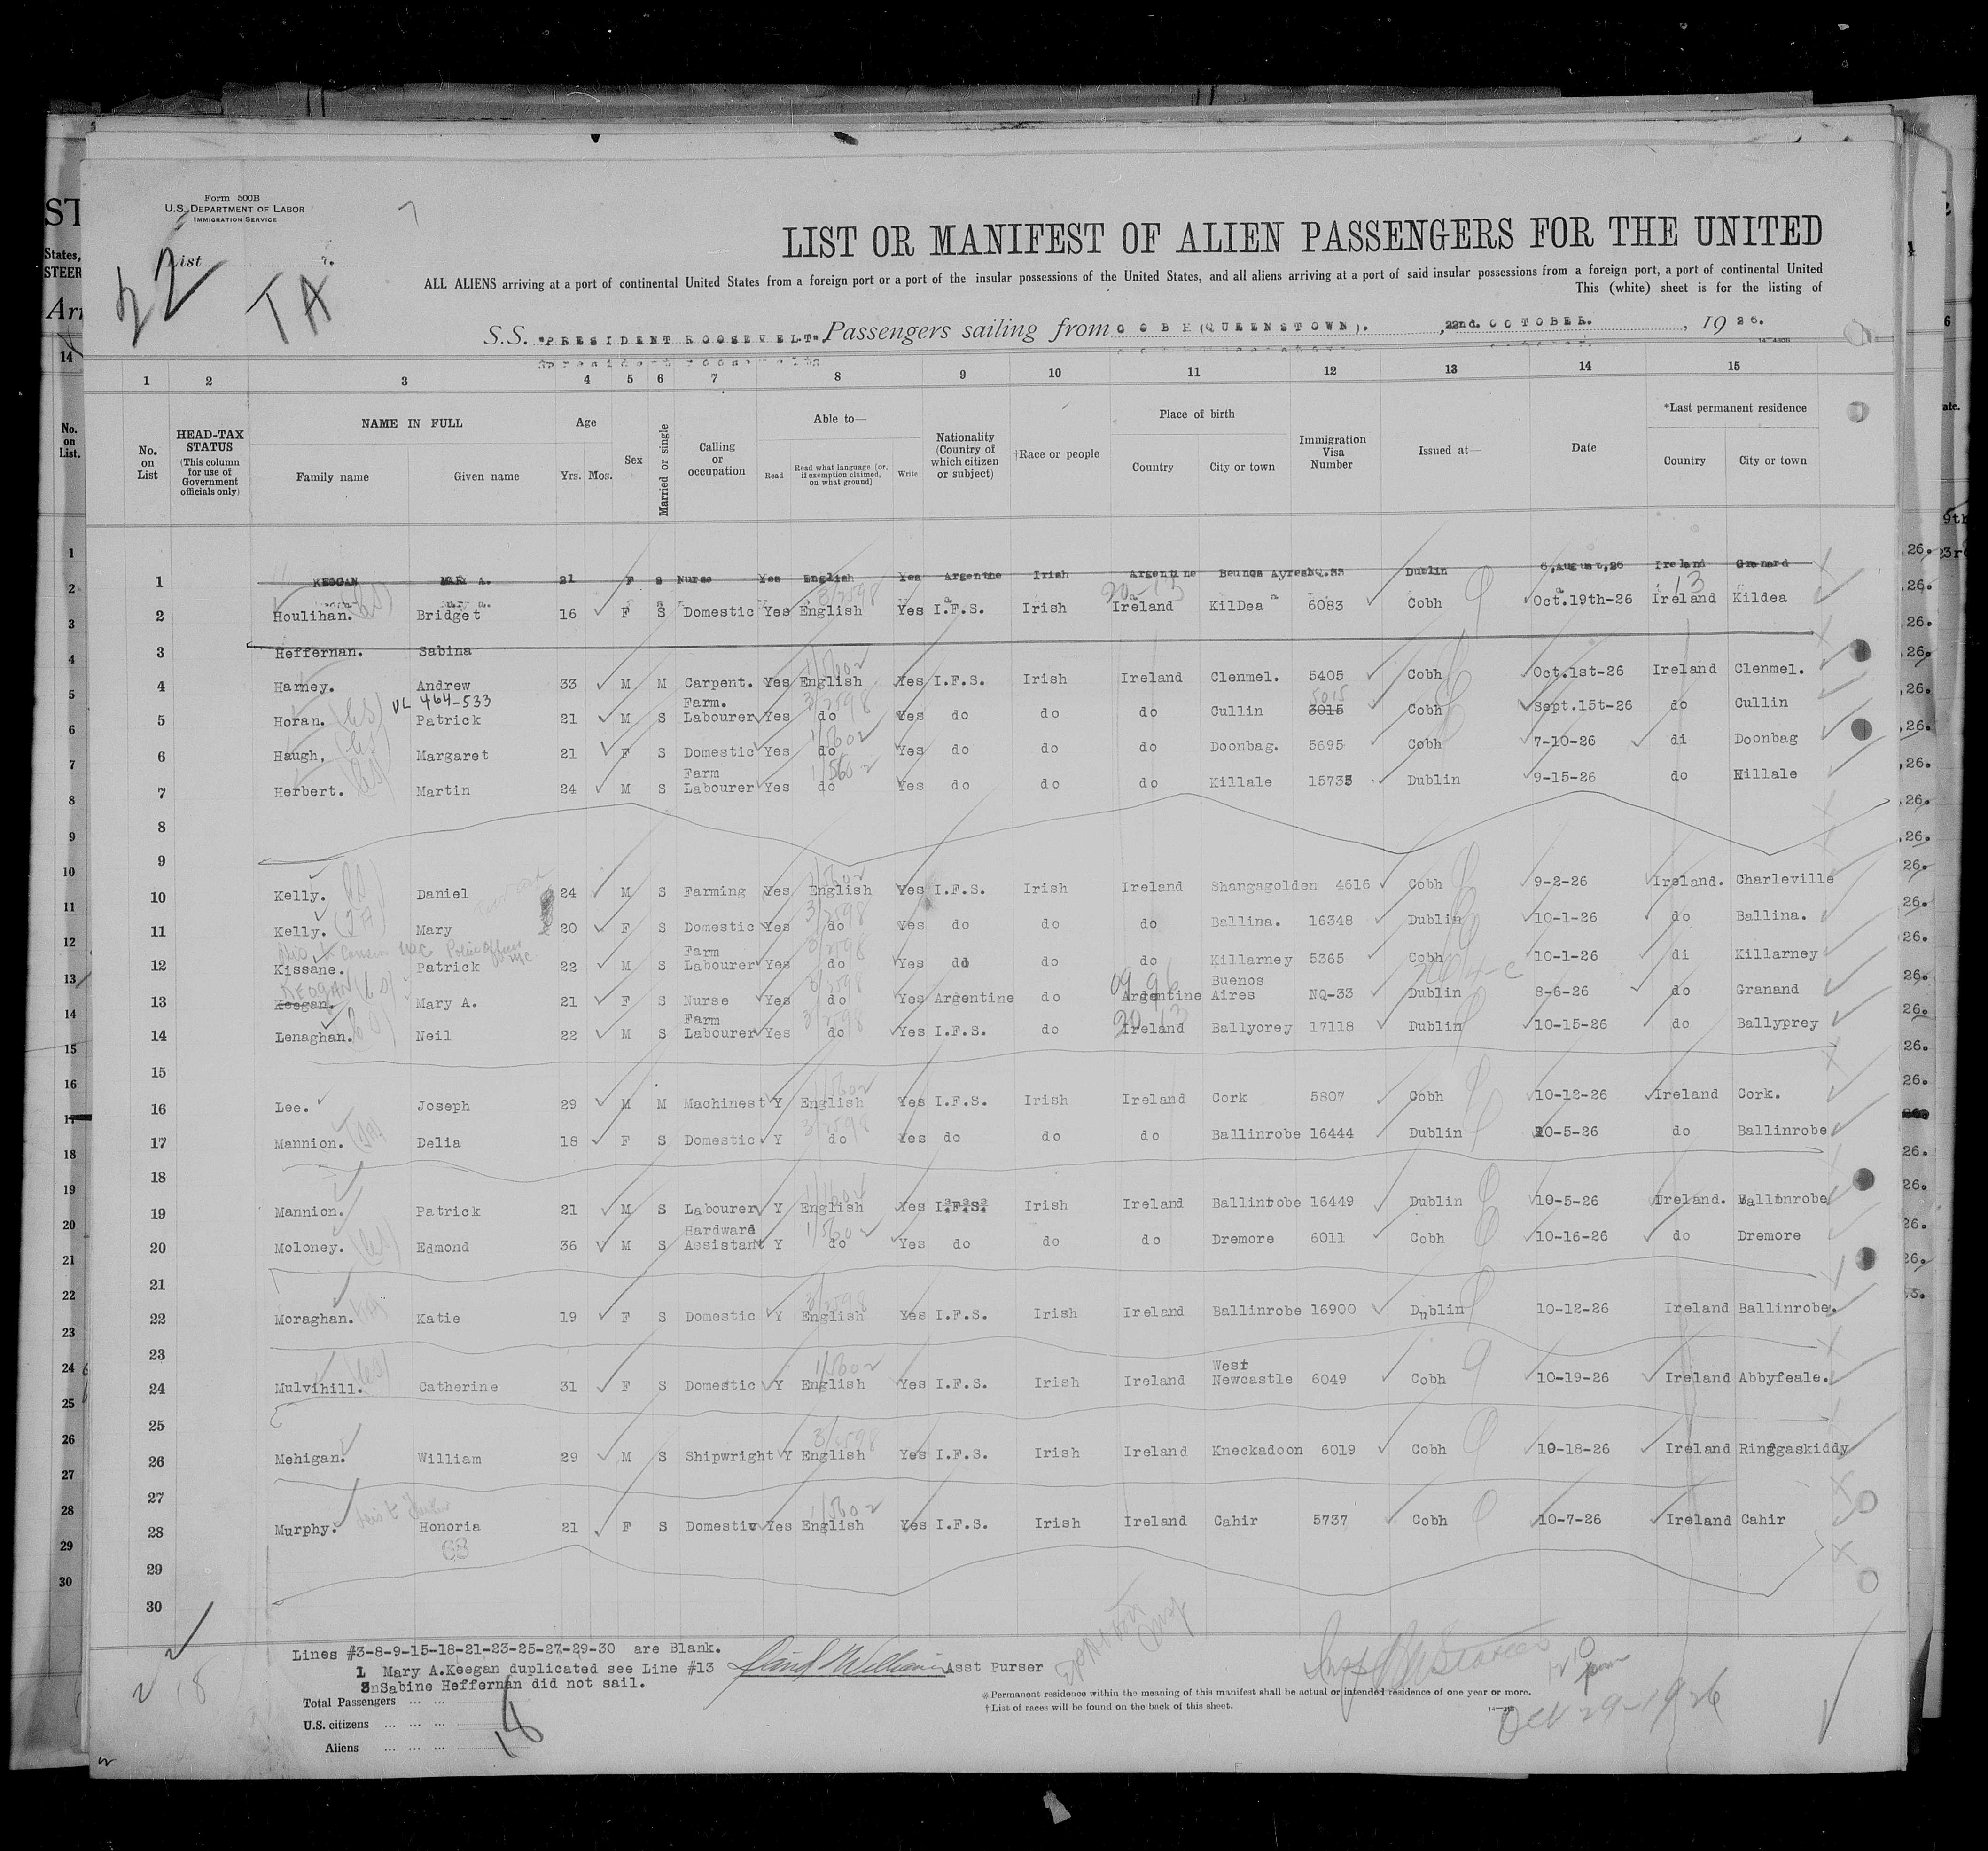 Form 500B
U.S. DEPARTMENT OF LABOR
IMMIGRATION SERVICE
List 7.
22
TA
LIST OR MANIFEST OF ALIEN PASSENGERS FOR THE UNITED
ALL ALIENS arriving at a port of continental United States from a foreign port or a port of the insular possessions of the United States, and all aliens arriving at a port of said insular possessions from a foreign port, a port of continental United
This (white) sheet is for the listing of
S.S. "PRESIDENT ROOSEVELT". Passengers sailing from COBH (QUEENSTOWN). ,22nd. OCTOBER. , 1926.
1 2 3 4 5 6 7 8 9 10 11 12 13 14 15
No. on List
HEAD-TAX STATUS (This column for use of Government officials only)
NAME IN FULL Family name Given name
Age Yrs. Mos.
Sex
Married or single
Calling or occupation
Able to— Read Read what language [or, if exemption claimed, on what ground] Write
Nationality (Country of which citizen or subject)
†Race or people
Place of birth Country City or town
Immigration Visa Number
Issued at—
Date
*Last permanent residence Country City or town
1 KEOGAN MARY A. 21 F S Nurse Yes English Yes Argentne Irish Argentine Beunos Ayres NQ.33 Dublin 6,August,26 Ireland Granard
2 Houlihan. Bridget 16 F S Domestic Yes English Yes I.F.S. Irish Ireland KilDea 6083 Cobh Oct.19th-26 Ireland Kildea
3 Heffernan. Sabina
4 Harney. Andrew 33 M M Carpent. Yes English Yes I.F.S. Irish Ireland Clenmel. 5405 Cobh Oct.1st-26 Ireland Clenmel.
VL 464-533
5 Horan. Patrick 21 M S Farm. Labourer Yes do Yes do do do Cullin 3015 5015 Cobh Sept.15t-26 do Cullin
6 Haugh, Margaret 21 F S Domestic Yes do Yes do do do Doonbag. 5695 Cobh 7-10-26 di Doonbag
7 Herbert. Martin 24 M S Farm Labourer Yes do Yes do do do Killale 15735 Dublin 9-15-26 do Killale
8
9
10 Kelly. Daniel 24 M S Farming Yes English Yes I.F.S. Irish Ireland Shangagolden 4616 Cobh 9-2-26 Ireland. Charleville
11 Kelly. Mary 20 F S Domestic Yes do Yes do do do Ballina. 16348 Dublin 10-1-26 do Ballina.
12 Kissane. Patrick 22 M S Farm Labourer Yes do Yes do do do Killarney 5365 Cobh 10-1-26 di Killarney
KEOGAN
13 Keegan. Mary A. 21 F S Nurse Yes do Yes Argentine do Argentine Buenos Aires NQ-33 Dublin 8-6-26 do Granand
14 Lenaghan. Neil 22 M S Farm Labourer Yes do Yes I.F.S. do Ireland Ballyorey 17118 Dublin 10-15-26 do Ballyprey
15
16 Lee. Joseph 29 M M Machinest Y English Yes I.F.S. Irish Ireland Cork 5807 Cobh 10-12-26 Ireland Cork.
17 Mannion. Delia 18 F S Domestic Y do Yes do do do Ballinrobe 16444 Dublin 10-5-26 do Ballinrobe
18
19 Mannion. Patrick 21 M S Labourer Y English Yes I.F.S. Irish Ireland Ballinrobe 16449 Dublin 10-5-26 Ireland. Ballinrobe
20 Moloney. Edmond 36 M S Hardward Assistant Y do Yes do do do Dremore 6011 Cobh 10-16-26 do Dremore
21
22 Moraghan. Katie 19 F S Domestic Y English Yes I.F.S. Irish Ireland Ballinrobe 16900 Dublin 10-12-26 Ireland Ballinrobe.
23
24 Mulvihill. Catherine 31 F S Domestic Y English Yes I.F.S. Irish Ireland West Newcastle 6049 Cobh 10-19-26 Ireland Abbyfeale.
25
26 Mehigan. William 29 M S Shipwright Y English Yes I.F.S. Irish Ireland Kneckadoon 6019 Cobh 10-18-26 Ireland Ringgaskiddy
27
28 Murphy. Honoria 21 F S Domestic Yes English Yes I.F.S. Irish Ireland Cahir 5737 Cobh 10-7-26 Ireland Cahir
29
30
Lines #3-8-9-15-18-21-23-25-27-29-30 are Blank.
1 Mary A.Keegan duplicated see Line #13
3 Sabine Heffernan did not sail.
Asst Purser
Total Passengers ... ...
U.S. citizens ... ... ...
Aliens ... ... ...
18
*Permanent residence within the meaning of this manifest shall be actual or intended residence of one year or more.
†List of races will be found on the back of this sheet.
Oct 29-1926